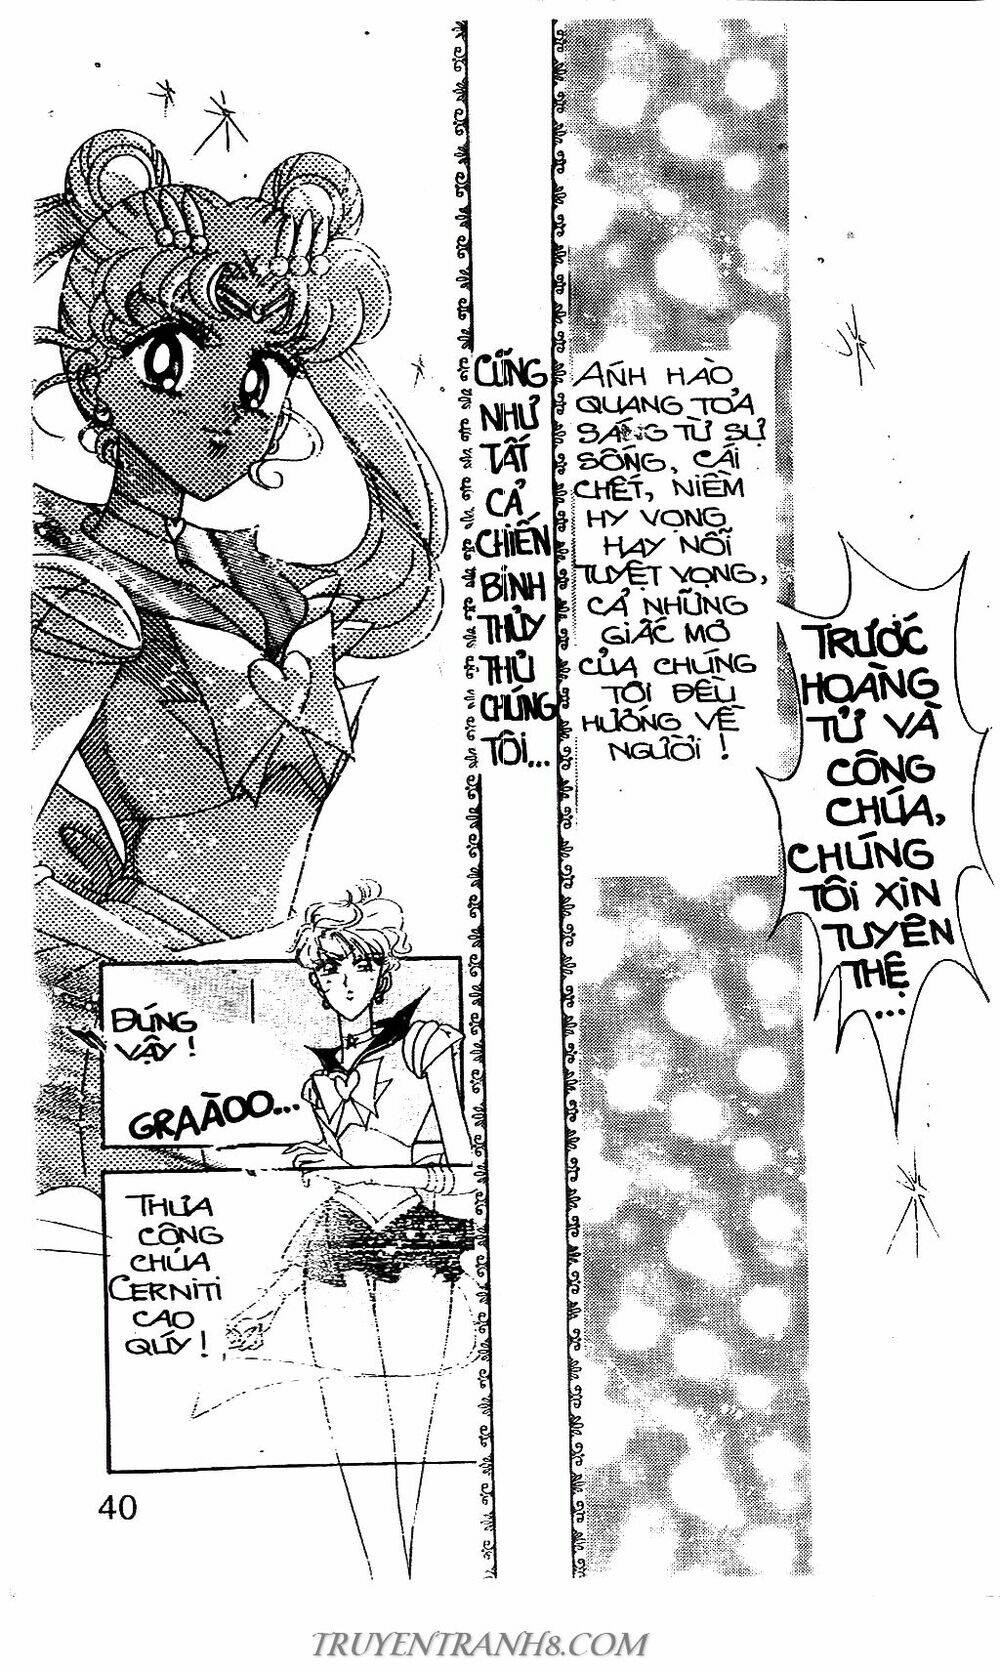 TRƯỚC
HOÀNG
TỬ VÀ
CÔNG
CHÚA,
CHÚNG
TÔI XIN
TUYÊN
THỆ
...
ANH HÀO
QUANG TỎA
SÁNG TỪ SỰ
SỐNG, CÁI
CHẾT, NIỀM
HY VỌNG
HAY NỖI
TUYỆT VỌNG,
CẢ NHỮNG
GIẤC MƠ
CỦA CHÚNG
TÔI ĐỀU
HƯỚNG VỀ
NGƯỜI !
CŨNG
NHƯ
TẤT
CẢ
CHIẾN
BINH
THỦY
THỦ
CHÚNG
TÔI...
ĐÚNG
VẬY !
GRAÀOO...
THƯA
CÔNG
CHÚA
CERNITI
CAO
QÚY !
40
TRUYENTRANH8.COM